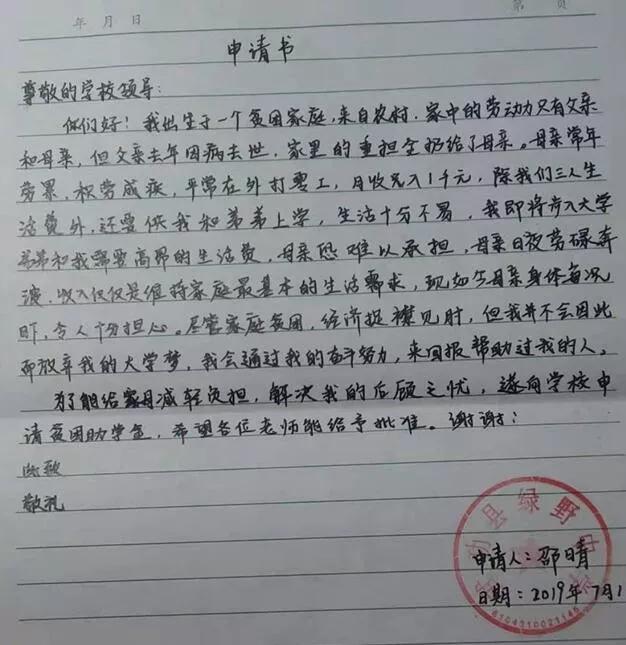 第 页
年 月 日
申请书
尊敬的学校领导:
你们好!我出生于一个贫困家庭,来自农村.家中的劳动力只有父亲
和母亲,但父亲去年因病去世.家里的重担全扔给了母亲。母亲常年
劳累,积劳成疾,平常在外打零工,月收入1千元,除我们三人生
活费外,还要供我和弟弟上学,生活十分不易,我即将步入大学
弟弟和我需要高昂的生活费,母亲恐难以承担,母亲日夜劳碌奔
波,收入仅仅是维持家庭最基本的生活需求,现如今母亲身体每况
,令人十分担心。尽管家庭贫困,经济捉襟见肘,但我并不会因此
而放弃我的大学梦,我会通过我的奋斗努力,来回报帮助过我的人。
为了能给家母减轻负担,解决我的后顾之忧,遂向学校申
请贫困助学金,希望各位老师能给予批准。谢谢!
此致
敬礼
县绿野中学
申请人:邵晴
日期:2019年7月1
6104310021145